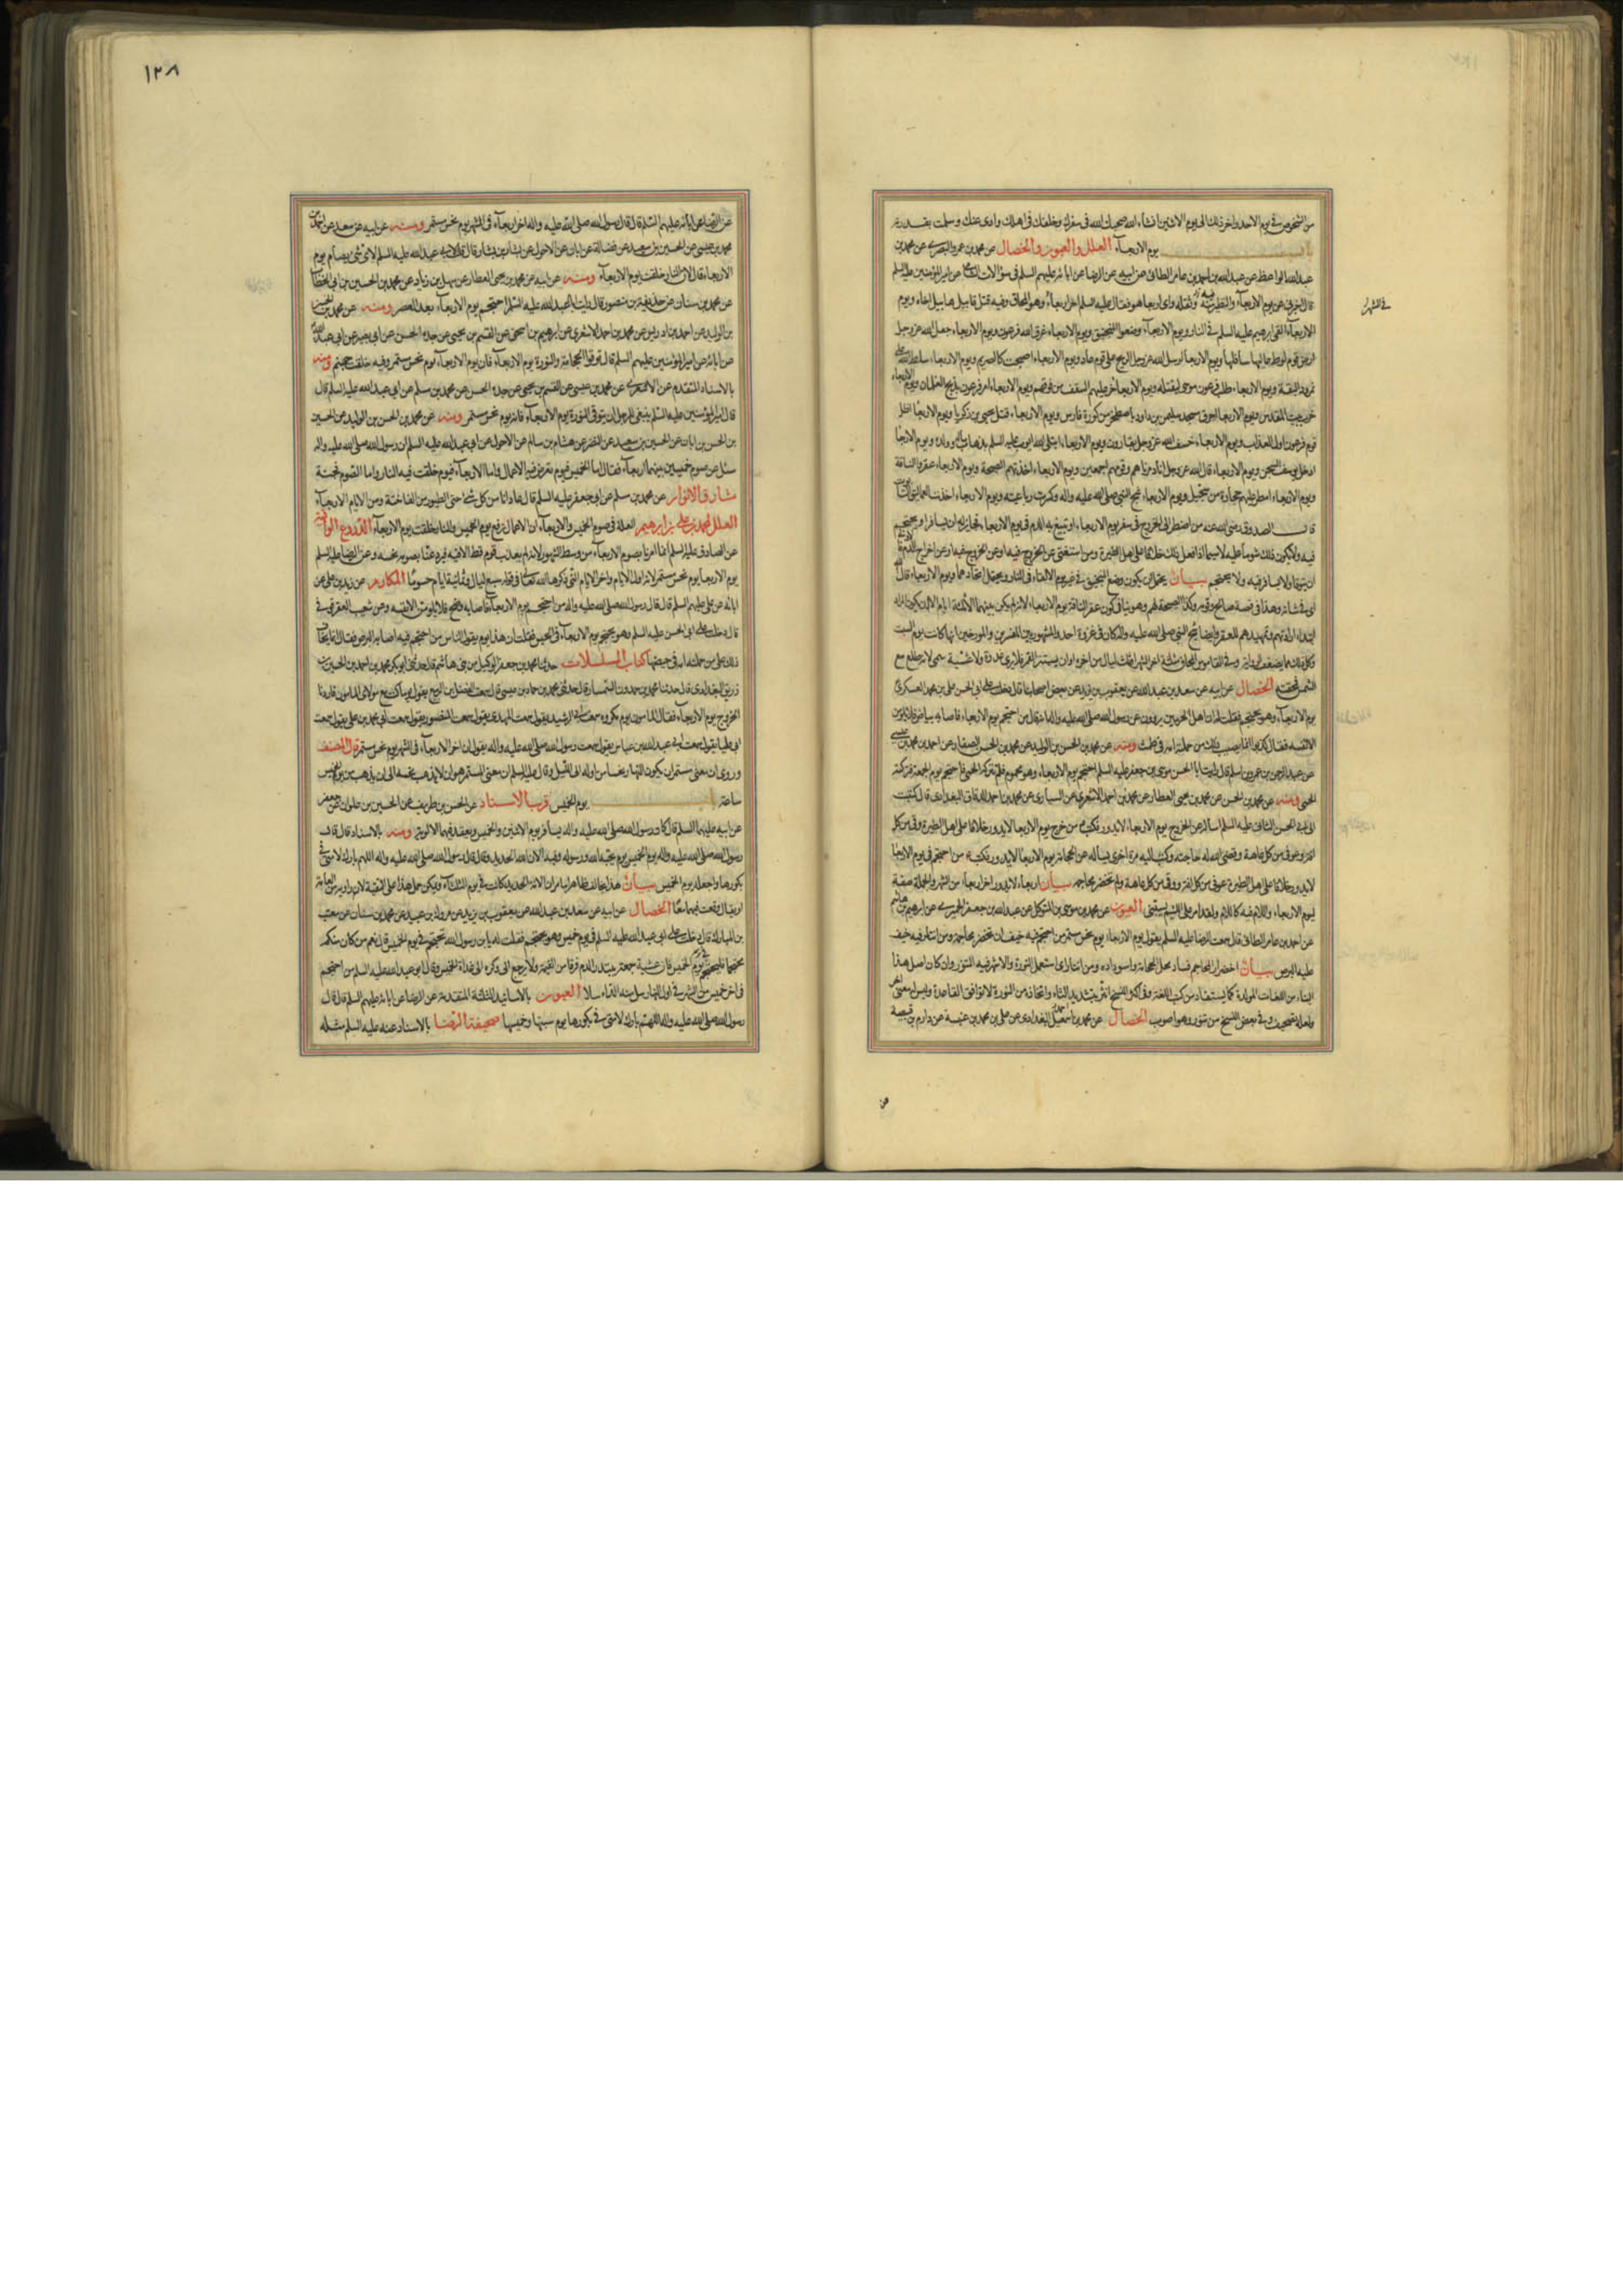 من الشخوص في يوم الاحد واخر ذلك الى يوم الاثنين انشاء الله صحبك الله في سفرك وخلفك في اهلك وادى عنك وسلمت بقدرته
باب يوم الاربعآء العلل والعيون والخصال عن محمد بن عمرو البصرى عن محمد بن
عبدالله الواعظ عن عبدالله بن احمد بن عامر الطائى عن ابيه عن الرضا عن ابائه عليهم السلم في سؤالات الشامى عن امير المؤمنين عليه السلم
قال اخبرنى عن يوم الاربعآء والتطير منه وثقله واى اربعا هو فقال عليه السلم اخر اربعاء وهو المحاق وفيه قتل قابيل هابيل اخاه ويوم
في الشهر
الاربعآء القى ابرهيم عليه السلم في النار ويوم الاربعآء وضعوا المنجنيق ويوم الاربعاء غرق الله فرعون ويوم الاربعاء جعل الله عز وجل
ارض قوم لوط عاليها سافلها ويوم الاربعا ارسل الله عز وجل الريح على قوم عاد ويوم الاربعاء اصبحت كالصريم ويوم الاربعاء سلط الله على
نمرود البقة ويوم الاربعاء طلب فرعون موسى ليقتله ويوم الاربعا خر عليهم السقف من فوقهم ويوم الاربعاء امر فرعون بذبح الغلمان ويوم الاربعاء
خرب بيت المقدس ويوم الاربعا احرق مسجد سليمن بن داود باصطخر من كورة فارس ويوم الاربعاء قتل يحيى بن زكريا ويوم الاربعا اظل
قوم فرعون اول العذاب ويوم الاربعاء خسف الله عز وجل بقارون ويوم الاربعاء ابتلى الله ايوب عليه السلم بذهاب ماله وولده ويوم الاربعا
ادخل يوسف السجن ويوم الاربعاء قال الله عز وجل انا دمرناهم وقومهم اجمعين ويوم الاربعاء اخذتهم الصيحة ويوم الاربعاء عقروا الناقة
ويوم الاربعاء امطر عليهم حجارة من سجيل ويوم الاربعاء شج النبى صلى الله عليه واله وكسرت رباعيته ويوم الاربعاء اخذت العماليق التابوت
قال الصدوق رضى الله عنه من اضطر الى الخروج في سفر يوم الاربعاء او تبيغ به الدم في يوم الاربعاء فجايز له ان يسافر او يحتجم
فيه ولا يكون ذلك شوما عليه لاسيما اذا فعل ذلك خلافا على اهل الطيرة ومن استغنى عن الخروج فيه او عن اخراج الدم
ان يتوقا ولا يسافر فيه ولا يحتجم بيان يحتمل ان يكون وضع المنجنيق في غير يوم الالقاء في النار ويحتمل اتحادهما ويوم الاربعاء قال الله
الشمس لمحقه الخصال عن ابيه عن سعد بن عبدالله عن يعقوب بن يزيد عن بعض اصحابنا قال دخلت على ابى الحسن على بن محمد العسكرى
يوم الاربعآء وهو يحتجم فقلت له ان اهل الحرمين يروون عن رسول الله صلى الله عليه واله انه قال من احتجم يوم الاربعاء فاصابه بياض فلا يلومن
الا نفسه فقال كذبوا انما يصيب ذلك من حملته امه في طمث ومنه عن محمد بن الحسن بن الوليد عن محمد بن الحسن الصفار عن احمد بن محمد بن عيسى
عن عبد الرحمن بن عمرو بن اسلم قال رايت ابا الحسن موسى بن جعفر عليه السلم احتجم يوم الاربعاء وهو محموم فلم تتركه الحمى فاحتجم يوم الجمعة فتركته
الحمى ومنه عن محمد بن الحسن عن محمد بن يحيى العطار عن محمد بن احمد الاشعرى عن السيارى عن محمد بن احمد الدقاق البغدادى قال كتبت
الى ابى الحسن الثانى عليه السلم اساله عن الخروج يوم الاربعاء لا يدور فكتب من خرج يوم الاربعا لا يدور خلافا على اهل الطيرة وقى من كل
افة وعوفى من كل عاهة وقضى الله له حاجته وكتب اليه مرة اخرى يساله عن الحجامة يوم الاربعا لا يدور فكتب من احتجم في يوم الاربعا
لا يدور خلافا على اهل الطيرة عوفى من كل افة ووقى من كل عاهة ولم تخضر محاجمه بيان اربعاء لا يدور اخر اربعاء من الشهر والجملة صفة
ليوم الاربعاء واللام فيه كاللام في ولقد امر على اللئيم يسبنى العيون عن محمد بن موسى بن المتوكل عن عبدالله بن جعفر الحميرى عن ابرهيم بن هاشم
عن احمد بن عامر الطائى قال سمعت الرضا عليه السلم يقول يوم الاربعاء يوم نحس مستمر من احتجم فيه خيف ان تخضر محاجمه ومن انتار فيه خيف
عليه البرص بيان اخضرار المحاجم فساد محل الحجامة واسوداده ومن انتار اى استعمل النورة والاشهر فيه التنور وان كان اصل هذا
ولعله تصحيف وفي بعض النسخ من تنور وهو اصوب الخصال عن محمد بن احمد البغدادى عن على بن محمد بن عنبسة عن دارم بن قبيصة
عن
١٢٨
عن الرضا عن ابائه عليهم السلم قال قال رسول الله صلى الله عليه واله اخر اربعآء في الشهر يوم نحس مستمر ومنه عن ابيه عن سعد عن احمد بن
محمد بن عيسى عن الحسين بن سعيد عن فضالة عن ابان عن الاحول عن بشار بن يسار قال قلت لابى عبدالله عليه السلم لاى شئ يصام يوم
الاربعاء قال لان النار خلقت يوم الاربعآء ومنه عن ابيه عن محمد بن يحيى العطار عن سهل بن زياد عن محمد بن الحسين بن ابى الخطاب
عن محمد بن سنان عن حذيفة بن منصور قال رايت ابا عبدالله عليه السلم احتجم يوم الاربعآء بعد العصر ومنه عن محمد بن الحسن
بن الوليد عن احمد بن ادريس عن محمد بن احمد الاشعرى عن ابرهيم بن اسحق عن القسم بن يحيى عن جده الحسن عن ابى بصير عن ابى عبدالله
عن ابائه عن امير المؤمنين عليهم السلم قال توقوا الحجامة والنورة يوم الاربعآء فان يوم الاربعآء يوم نحس مستمر وفيه خلقت جهنم ومنه
بالاسناد المتقدم عن الاشعرى عن محمد بن عيسى عن القسم بن يحيى عن جده الحسن عن محمد بن مسلم عن ابى عبدالله عليه السلم قال
قال امير المؤمنين عليه السلم ينبغى للرجل ان يتوقى النورة يوم الاربعآء فانه يوم نحس مستمر ومنه عن محمد بن الحسن بن الوليد عن الحسين
بن الحسن بن ابان عن الحسين بن سعيد عن النضر عن هشام بن سالم عن الاحول عن ابى عبدالله عليه السلم ان رسول الله صلى الله عليه واله
سئل عن صوم خميسين بينهما اربعآء فقال اما الخميس فيوم تعرض فيه الاعمال واما الاربعآء فيوم خلقت فيه النار واما الصوم فجنة
مشارق الانوار عن محمد بن مسلم عن ابى جعفر عليه السلم قال عادانا من كل شئ حتى الطيور من الفاختة ومن الايام الاربعآء
العلل لمحمد بن على بن ابراهيم العلة في صوم الخميس والاربعآء ان الاعمال ترفع يوم الخميس والنار خلقت يوم الاربعآء الدروع الواقية
عن الصادق عليه السلم
يوم الاربعا يوم نحس مستمر لانه اول الايام واخر الايام التى ذكرها الله تعالى في قوله سبع ليال وثمانية ايام حسوما المكارم عن زيد بن على عن
ابائه عن على عليهم السلم قال قال رسول الله صلى الله عليه واله من احتجم يوم الاربعآء فاصابه وضح فلا يلومن الا نفسه وعن شعيب العقرقوفى
قال دخلت على ابى الحسن عليه السلم وهو يحتجم يوم الاربعآء في الحبس فقلت ان هذا يوم يقول الناس من احتجم فيه اصابه البرص فقال انما يخاف
ذلك على من حملته امه في حيضها كتاب المسلسلات
الخروج يوم الاربعآء فقال المامون يوم مكروه سمعت ابى الرشيد يقول سمعت المهدى يقول سمعت المنصور يقول سمعت ابى محمد بن على يقول سمعت
ابى عليا يقول سمعت ابى عبدالله بن عباس يقول سمعت رسول الله صلى الله عليه واله يقول ان اخر الاربعآء في الشهر يوم نحس مستمر قال المصنف
ساعته باب يوم الخميس قرب الاسناد عن الحسن بن ظريف عن الحسين بن علوان عن جعفر
عن ابيه عليهما السلم قال كان رسول الله صلى الله عليه واله يسافر يوم الاثنين والخميس ويعقد فيهما الالوية ومنه بالاسناد قال قال
رسول الله صلى الله عليه واله يوم الخميس يوم يحبه الله ورسوله وفيه الان الله الحديد وقال قال رسول الله صلى الله عليه واله اللهم بارك لامتى في
بكورها واجعله يوم الخميس بيان
الخصال عن ابيه عن سعد بن عبدالله عن يعقوب بن يزيد عن مروك بن عبيد عن محمد بن سنان عن معتب
بن المبارك قال دخلت على ابى عبدالله عليه السلم في يوم خميس وهو يحتجم فقلت له يا بن رسول الله تحتجم في يوم الخميس قال نعم من كان منكم
محتجما فليحتجم في يوم الخميس فان عشية كل جمعة يبتدر الدم فرقا من القيمة ولا يرجع الى وكره الى غداة الخميس وقال ابو عبدالله عليه السلم من احتجم
في اخر خميس من الشهر في اول النهار سل منه الداء سلا العيون بالاسانيد الثلثة المتقدمة عن الرضا عن ابائه عليهم السلم قال قال
رسول الله صلى الله عليه واله اللهم بارك لامتى في بكورها يوم سبتها وخميسها صحيفة الرضا بالاسناد عنه عليه السلم مثله